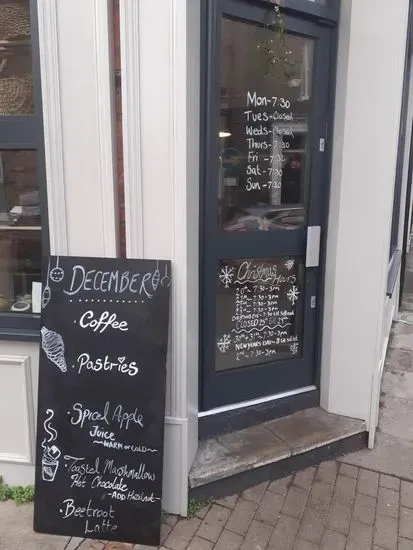 DECEMBER
• Coffee
• Pastries
• Spiced Apple
Juice
~WARM or COLD~
• Toasted Marshmallow
Hot Chocolate
-ADD Hazelnut-
• Beetroot
Latte
Mon-7:30
Tues-Closed
Weds-Closed
Thurs-7:30
Fri -7:30
Sat -7:30
Sun -7:30
Christmas
Hours
7:30-3pm
7:30-3pm
7:30-3pm
7:30-3pm
CLOSED 25th
30th + 31st - 7:30-3pm
NEW YEARS DAY-
2nd -7:30-3pm